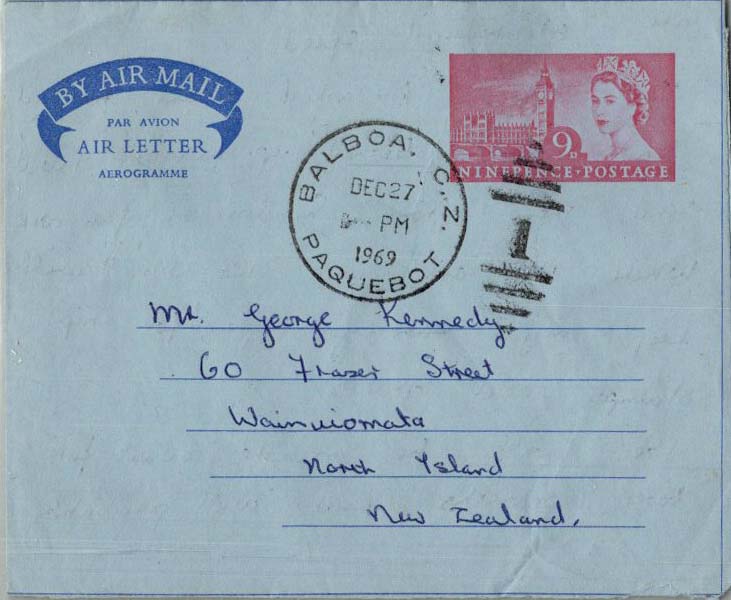 BY AIR MAIL
PAR AVION
AIR LETTER
AEROGRAMME
9D
NINEPENCE·POSTAGE
BALBOA, C.Z.
DEC27
PM
1969
PAQUEBOT
1
Mr. George Kennedy
60 Frazer Street
Wainuiomata
North Island
New Zealand.